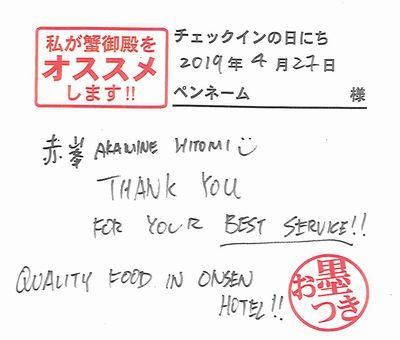 私が蟹御殿を
オススメ
します!!
チェックインの日にち
2019年4月27日
ペンネーム 様
赤峯 AKAMINE HITOMI
THANK YOU
FOR YOUR BEST SERVICE!!
QUALITY FOOD IN ONSEN
HOTEL!!
お墨つき